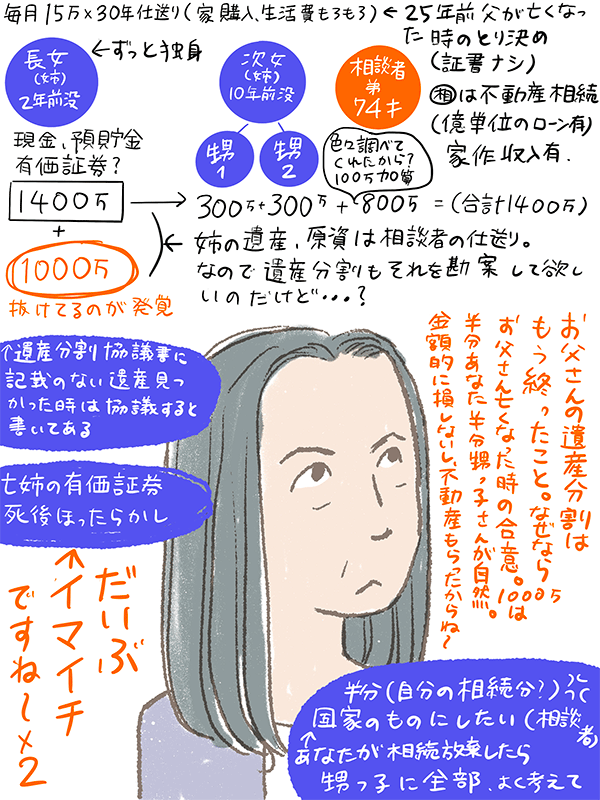 毎月15万×30年仕送り(家購入、生活費もろもろ)←25年前父が亡くなっ
た時のとり決め
(証書ナシ)
相は不動産相続
(億単位のローン有)
家作収入有.
長女
(姉)
2年前没
←ずっと独身
次女
(姉)
10年前没
相談者
弟
74才
甥
1
甥
2
色々調べて
くれたから?
100万加算
現金、預貯金
有価証券?
1400万
→
300万+300万+800万=(合計1400万)
+
1000万
抜けてるのが発覚
←姉の遺産、原資は相談者の仕送り。
なので遺産分割もそれを勘案して欲し
いのだけど・・・?
お父さんの遺産分割は
もう終ったこと。なぜなら
お父さん亡くなった時の合意。1000万は
半分あなた半分甥っ子さんが自然。
金額的に損しないし、不動産もらったからね〜
遺産分割協議書に
記載のない遺産見つ
かった時は協議すると
書いてある
亡姉の有価証券
死後ほったらかし
↑
だいぶ
イマイチ
ですね〜×2
半分(自分の相続分?)
国家のものにしたい(相談者)
↑
あなたが相続放棄したら
甥っ子に全部、よく考えて